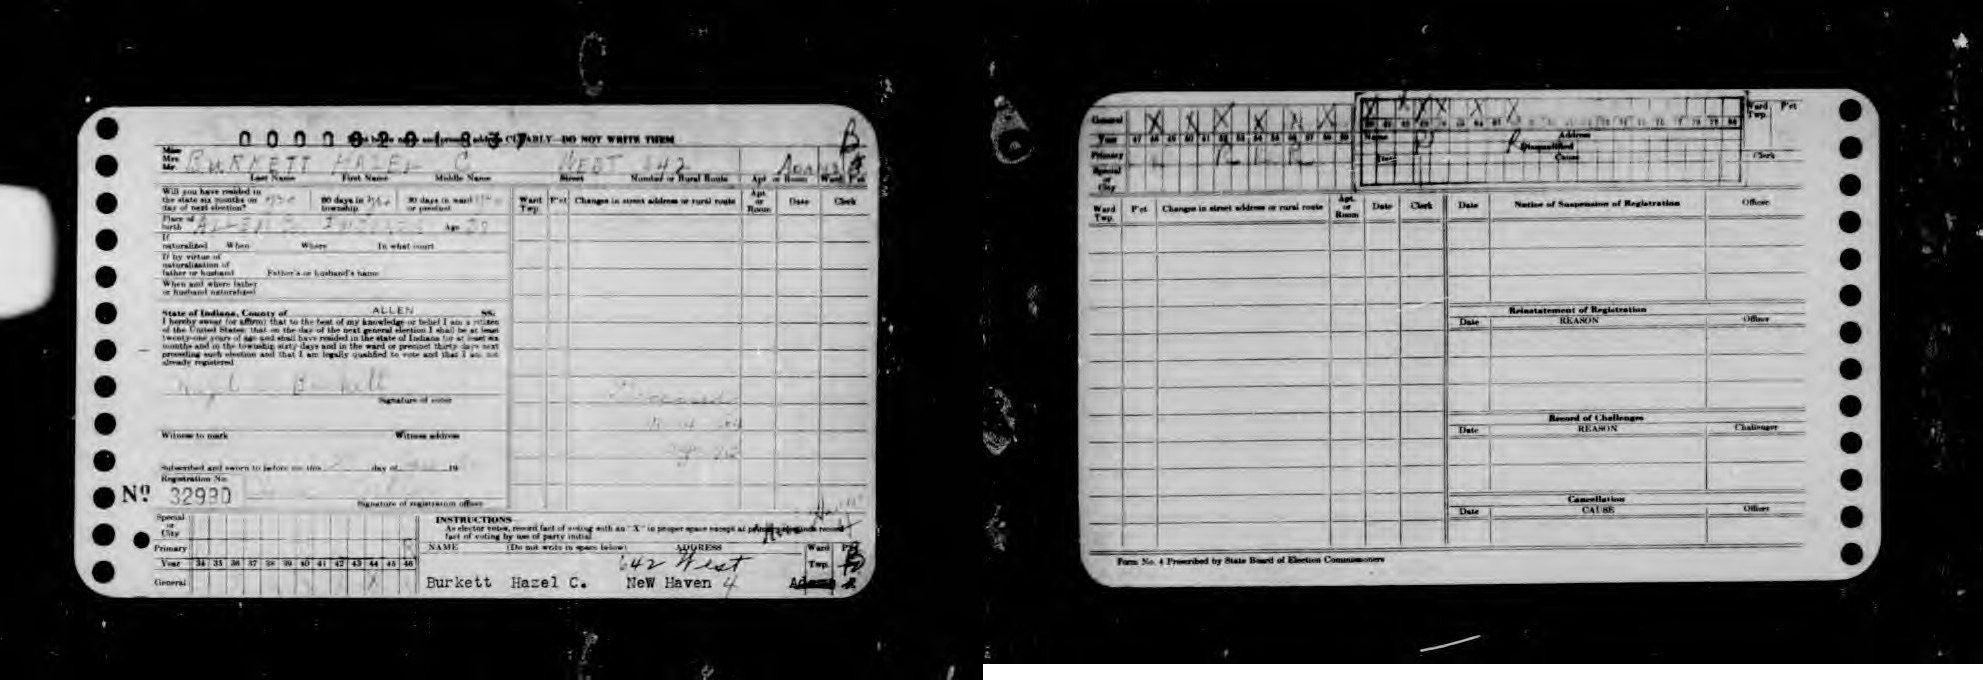 CLEARLY—DO NOT WRITE THEM
Miss
Mrs.
Mr.
BURKETT HAZEL C WEST 642
Last Name First Name Middle Name Street Number or Rural Route Apt or Room Ward P'ct
B
Will you have resided in
the state six months on
day of next election?
60 days in
township
30 days in ward
or precinct
Place of
birth ALLEN Age
If
naturalized When Where In what court
If by virtue of
naturalization of
father or husband Father's or husband's name
When and where father
or husband naturalized
State of Indiana, County of ALLEN SS:
I hereby swear (or affirm) that to the best of my knowledge or belief I am a citizen
of the United States; that on the day of the next general election I shall be at least
twenty-one years of age and shall have resided in the state of Indiana for at least six
months and in the township sixty days and in the ward or precinct thirty days next
preceding such election and that I am legally qualified to vote and that I am not
already registered
Hazel Burkett
Signature of voter
Witness to mark Witness address
Subscribed and sworn to before me this day of 19
Registration No.
Nº 32990
Signature of registration officer
Ward
Twp. P'ct Changes in street address or rural route Apt.
or
Room Date Clerk
Deceased
Special
or
City
Primary R
Year 34 35 36 37 38 39 40 41 42 43 44 45 46
General X
INSTRUCTIONS
As elector votes, record fact of voting with an "X" in proper space except at
fact of voting by use of party initial
NAME (Do not write in space below) ADDRESS Ward
Twp.
642 West
Burkett Hazel C. NeW Haven 4
General X X X X X X
Year 47 48 49 50 51 52 53 54 55 56 57 58 59
Primary R R R R
Special
or
City
Name Address
Disqualified
Date Cause Clerk
Ward
Twp. P'ct
Ward
Twp. P'ct Changes in street address or rural route Apt.
or
Room Date Clerk
Date Notice of Suspension of Registration Officer
Reinstatement of Registration
Date REASON Officer
Record of Challenges
Date REASON Challenger
Cancellation
Date CAUSE Officer
Form No. 4 Prescribed by State Board of Election Commissioners